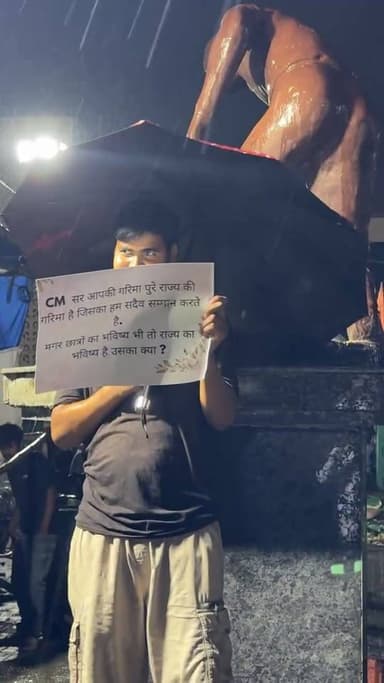 CM सर आपकी गरिमा पुरे राज्य की
गरिमा है जिसका हम सदैव सम्मान करते
है.
मगर छात्रों का भविष्य भी तो राज्य का
भविष्य है उसका क्या ?